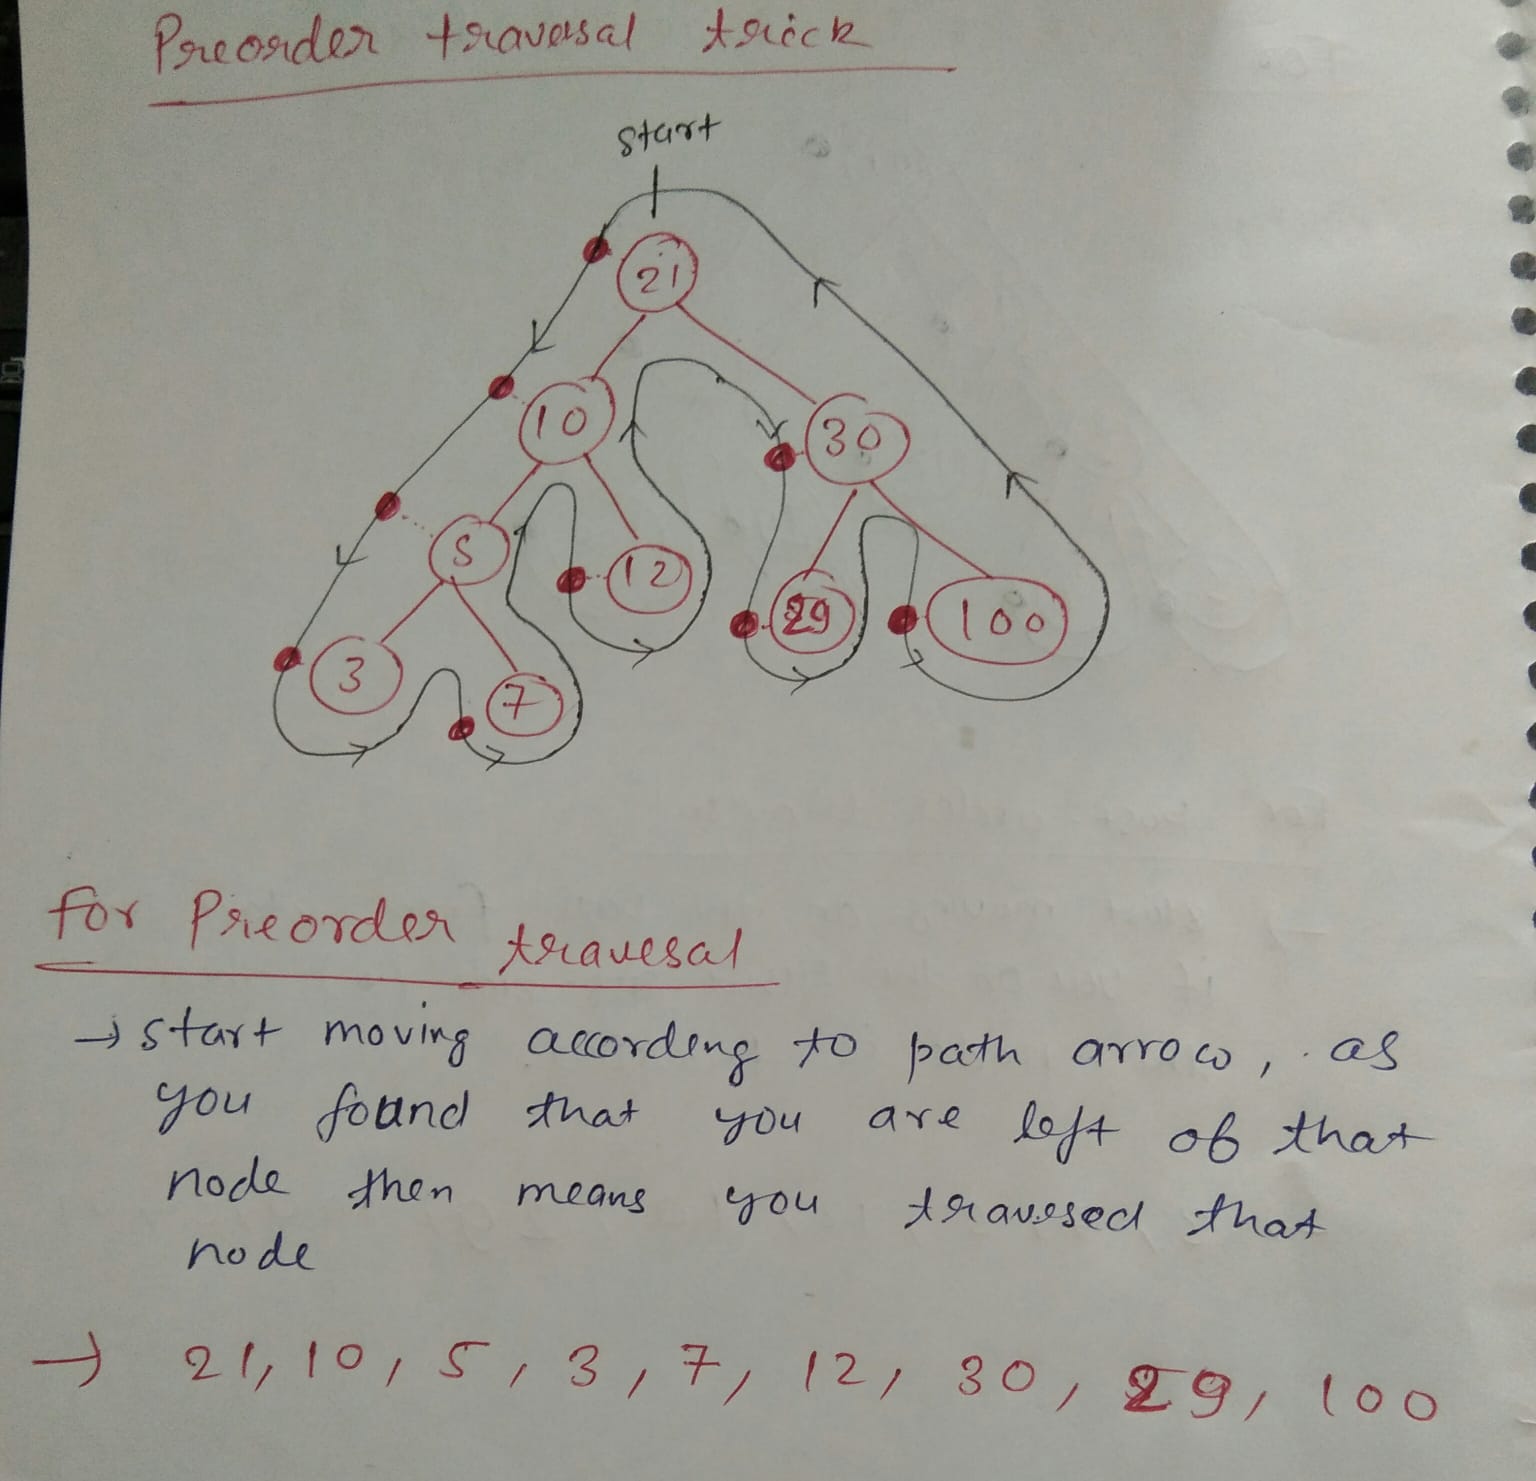 Preorder traversal trick
start
21
10
30
5
12
29
100
3
7
for Preorder travesal
→ start moving according to path arrow, as
you found that you are left of that
node then means you travesed that
node
→ 21, 10, 5, 3, 7, 12, 30, 29, 100